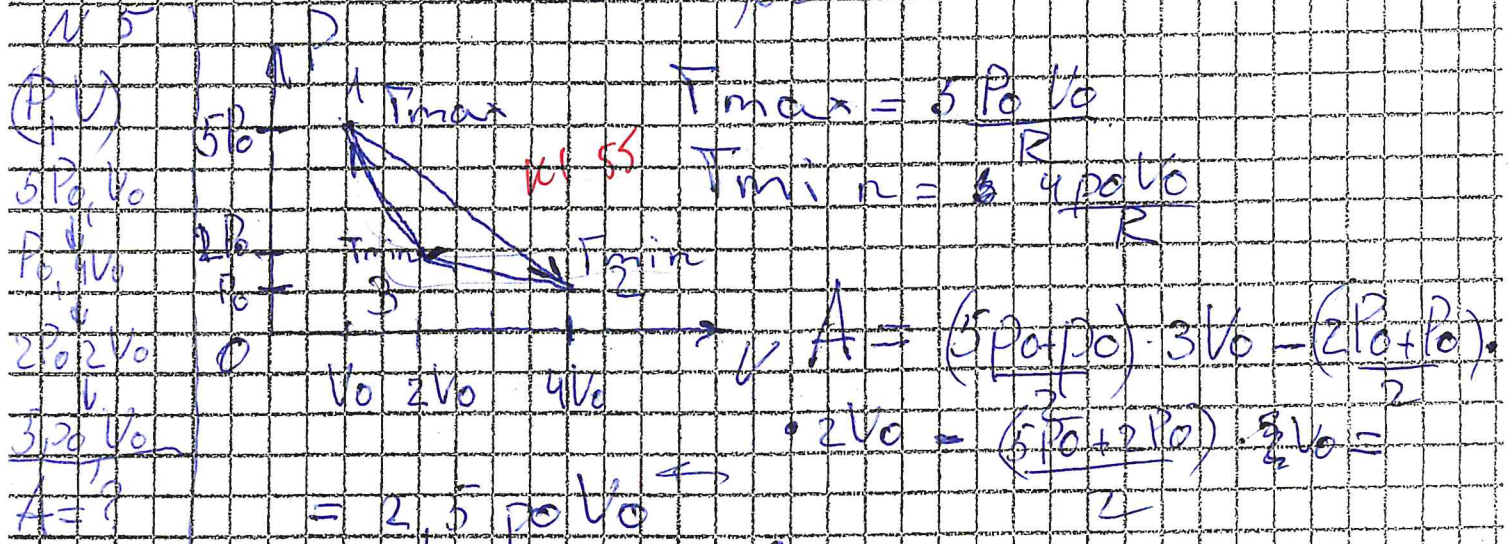 N 5
(P, V)
5P₀, V₀
↓
P₀, 4V₀
↓
2P₀ 2V₀
↓
5p₀, V₀
A = ?
P
5P₀
2P₀
P₀
0
1 Tmax
Tmin
3
Tmin
2
V₀ 2V₀ 4V₀
V
Tmax = 5P₀V₀/R
Tmin = 4p₀V₀/R
A = (5p₀+p₀)/2 · 3V₀ − (2P₀+P₀)/2 ·
· 2V₀ − (5P₀+2P₀)/2 · V₀ =
= 2,5 p₀V₀